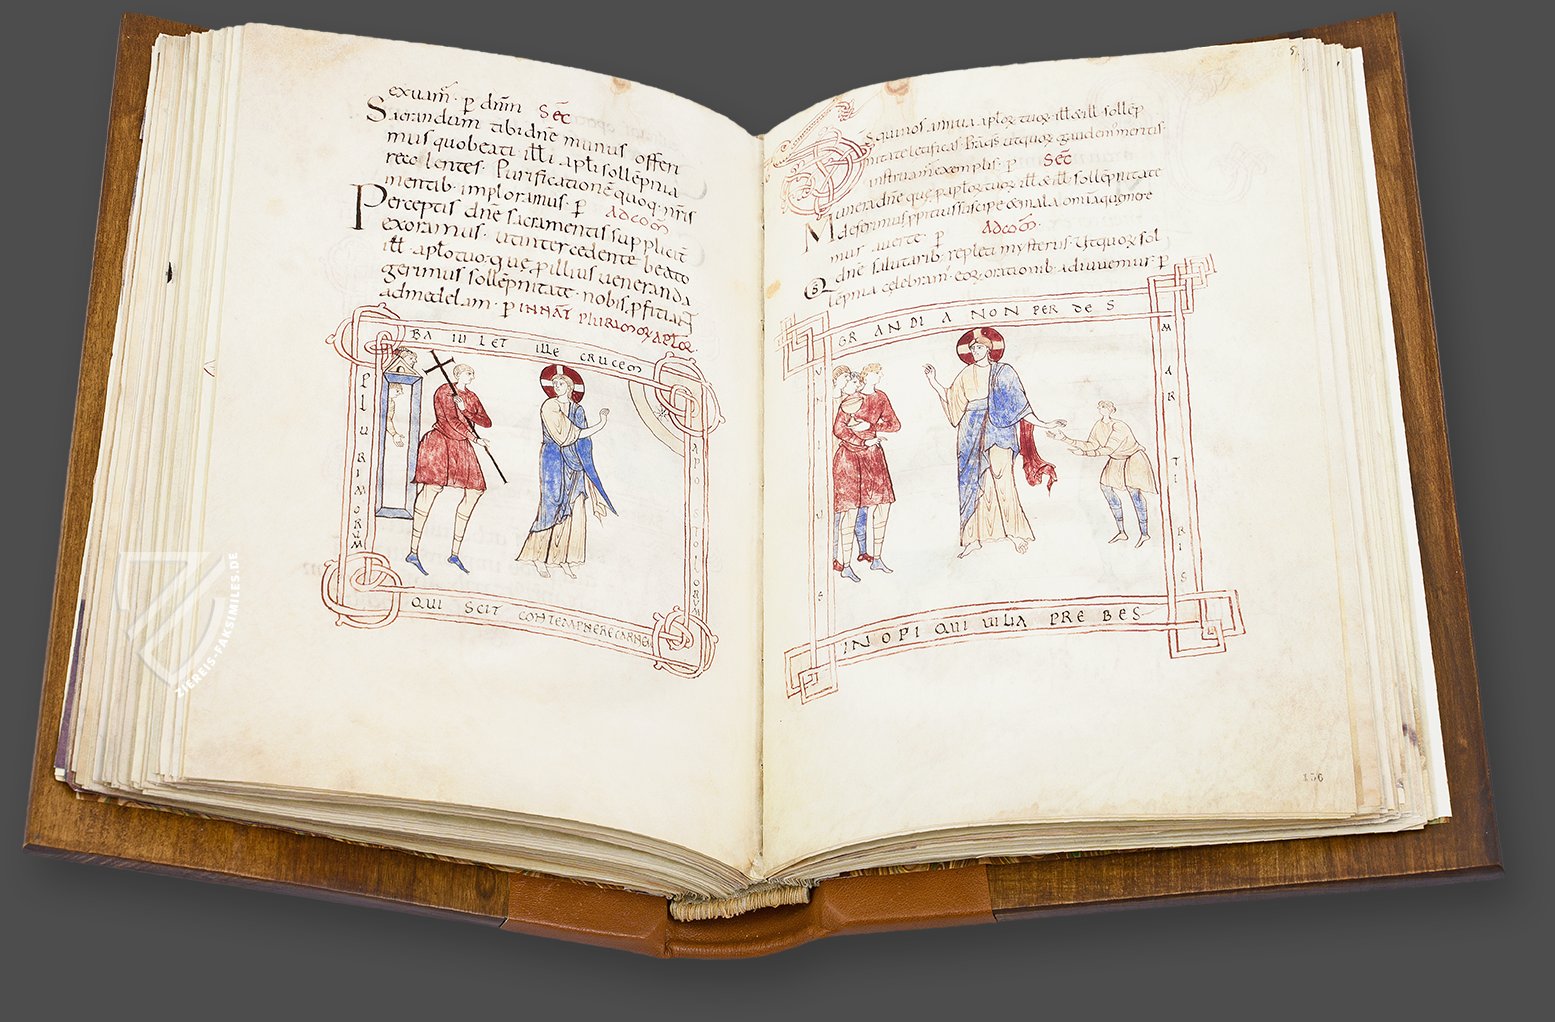 exuam̄· p̄ dnm̄ Sec̄
Sacrandum tibi dn̄e munus offeri
mus quo beati· ill̄i apl̄i sollēpnia
recolentes· Purificationē quoq· nr̄is
mentib· imploramus· p̄ Adcom̄
Perceptis dn̄e sacramentis supplicit̄
exoramus· ut intercedente beato
ill̄ aplo tuo· que p̄ illius ueneranda
gerimus sollēpnitate· nobis p̄ficiant
ad medelam· p̄ IN NAT̄ PLURIMOR APLOR·
BAIULET ILLE CRUCEM
PLURIMORUM
APOSTOLORUM
QUI SCIT CONTEMPNERE CARNEM
tuor· ill̄ & ill̄· sollēp
nitate letificas·
instruam̄ exemplis· p̄ Sec̄
Munera dn̄e que p apl̄or tuor ill̄ & ill̄· sollēpnitate
deferimus ppitius suscipe & mala omia que mere
mur auerte p̄ Adcom̄·
Qs dn̄e salutarib· repleti mysteriis· Ut quor sol
lēpnia celebram̄· eor orationib· adiuuemur p̄
GRANDIA NON PERDES
UNIUS
MARTIRIS
INOPI QUI UILIA PREBES
156
ZIEREIS-FAKSIMILES.DE